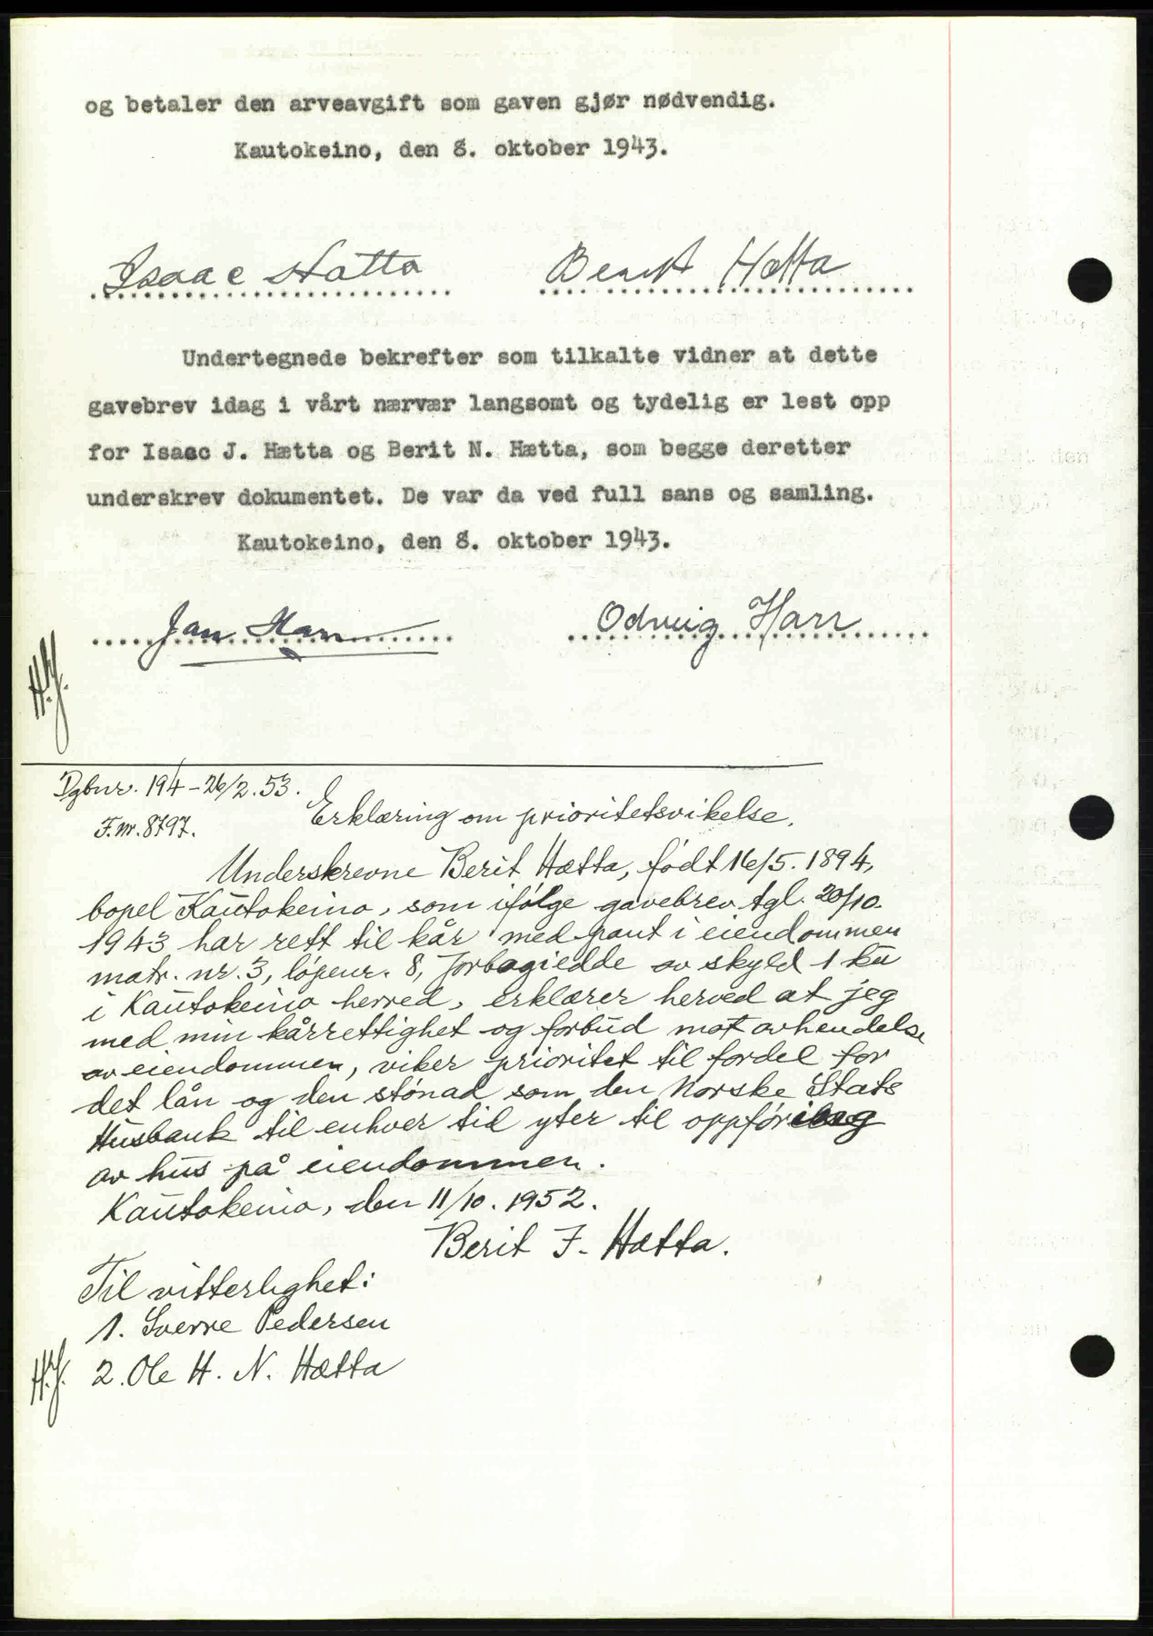 og betaler den arveavgift som gaven gjør nødvendig.
Kautokeino, den 8. oktober 1943.
Isaac Hætta Berit Hætta
Undertegnede bekrefter som tilkalte vidner at dette
gavebrev idag i vårt nærvær langsomt og tydelig er lest opp
for Isaac J. Hætta og Berit N. Hætta, som begge deretter
underskrev dokumentet. De var da ved full sans og samling.
Kautokeino, den 8. oktober 1943.
Jan Harr Odveig Harr
H.J.
Dgbnr. 194 - 26/2. 53.
Erklæring om prioritetsvikelse.
F.nr. 8797.
Underskrevne Berit Hætta, født 16/5. 1894,
bopel Kautokeino, som ifølge gavebrev tgl. 20/10.
1943 har rett til kår med pant i eiendommen
matr. nr. 3, løpenr. 8, Jorbagiedde av skyld 1 ku
i Kautokeino herred, erklærer herved at jeg
med min kårrettighet og forbud mot avhendelse
av eiendommen, viker prioritet til fordel for
det lån og den stønad som den Norske Stats
Husbank til enhver tid yter til oppføring
av hus på eiendommen.
Kautokeino, den 11/10. 1952.
Berit J. Hætta.
Til vitterlighet:
1. Sverre Pedersen
H.J. 2. Ole H. N. Hætta